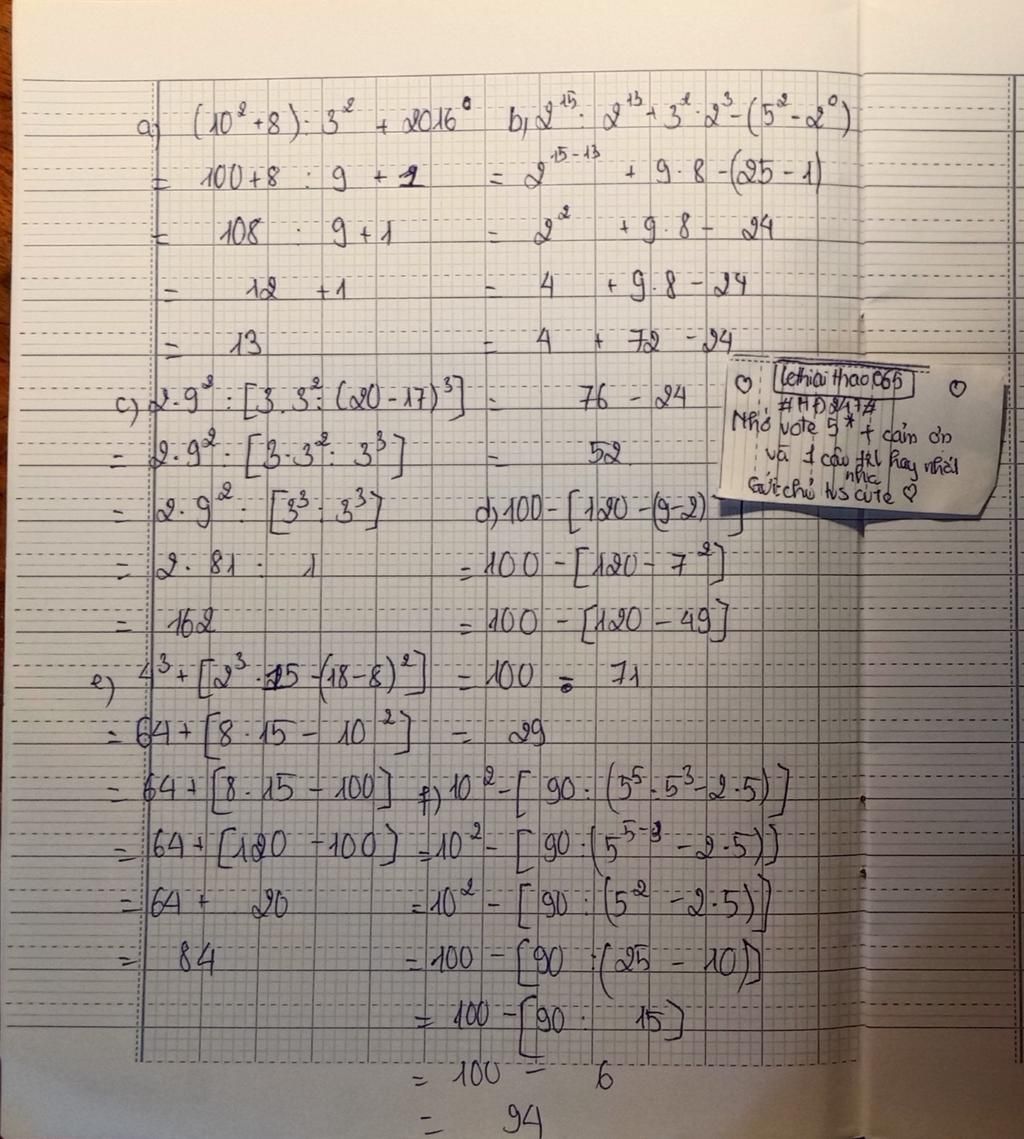 a) (10²+8) : 3² + 2016⁰
= 100+8 : 9 + 1
= 108 : 9+1
= 12 +1
= 13
b, 2¹⁵ : 2¹³ + 3² . 2³ - (5² - 2⁰)
= 2¹⁵⁻¹³ + 9 . 8 - (25 - 1)
= 2² + 9 . 8 - 24
= 4 + 9 . 8 - 24
= 4 + 72 - 24
= 76 - 24
= 52
c) 2.9² : [3.3² : (20-17)³]
= 2.9² : [3.3² : 3³]
= 2.9² : [3³ : 3³]
= 2.81 : 1
= 162
d, 100 - [120 - (9-2) ]
= 100 - [120 - 7²]
= 100 - [120 - 49]
= 100 - 71
= 29
e) 4³ + [2³ . 15 - (18-8)²]
= 64 + [8 . 15 - 10²]
= 64 + [8 . 15 - 100]
= 64 + [120 - 100]
= 64 + 20
= 84
f,) 10² - [90 : (5⁵ : 5³ - 2.5)]
= 10² - [90 : (5⁵⁻³ - 2.5)]
= 10² - [90 : (5² - 2.5)]
= 100 - [90 : (25 - 10)]
= 100 - [90 : 15]
= 100 - 6
= 94
lethiaithao065
#HD247#
Nhớ vote 5* + cảm ơn
và 1 câu hay nhất
nha
cute ♡